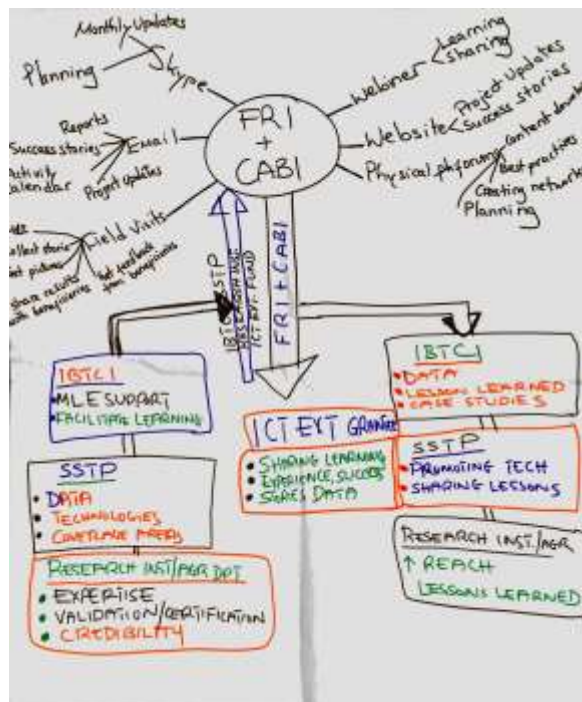 Monthly Updates
Planning
Skype
Reports
Success stories
Email
calendar
Project updates
Field Visits
share results
with beneficiaries
get feedback
from beneficiaries
FRI
+
CABI
Webiner
Learning
Sharing
Website
Project Updates
Success stories
Physical
Content
Best practices
Creating networks
Planning
SSTP
RESEARCH INST.
ICT EXT. FUND
FRI + CABI
IBTCI
• MLE SUPPORT
• FACILITATE LEARNING
SSTP
• DATA
• TECHNOLOGIES
• COVERAGE AREAS
RESEARCH INST/AGR DPT
• EXPERTISE
• VALIDATION/CERTIFICATION
• CREDIBILITY
ICT EXT GRANTEE
• SHARING LEARNING
• EXPERIENCE, SUCCESS
• STORIES DATA
IBTCI
• DATA
• LESSON LEARNED
• CASE STUDIES
SSTP
• PROMOTING TECH
• SHARING LESSONS
RESEARCH INST./AGR
↑ REACH
LESSONS LEARNED